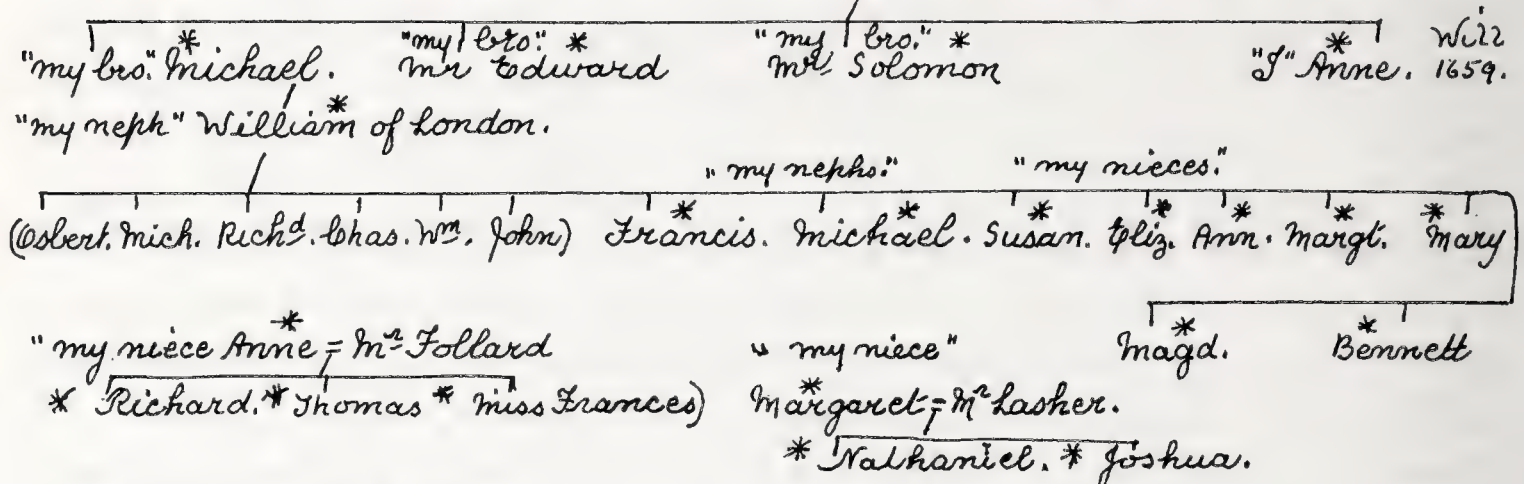 "my bro." * "my bro." * * Will
"my bro." Michael. * Mr Edward Mr Solomon "I" Anne. 1659.
"my neph" William * of London.
"my nephs." "my nieces."
(Osbert. Mich. Richd. Chas. Wm. John) Francis. * Michael. * Susan. * Eliz. * Ann. * Margt. * Mary *
"my niece Anne * = Mr Follard "my niece" Magd. * Bennett *
* Richard. * Thomas * Miss Frances) Margaret * = Mr Lasher.
* Nathaniel. * Joshua.